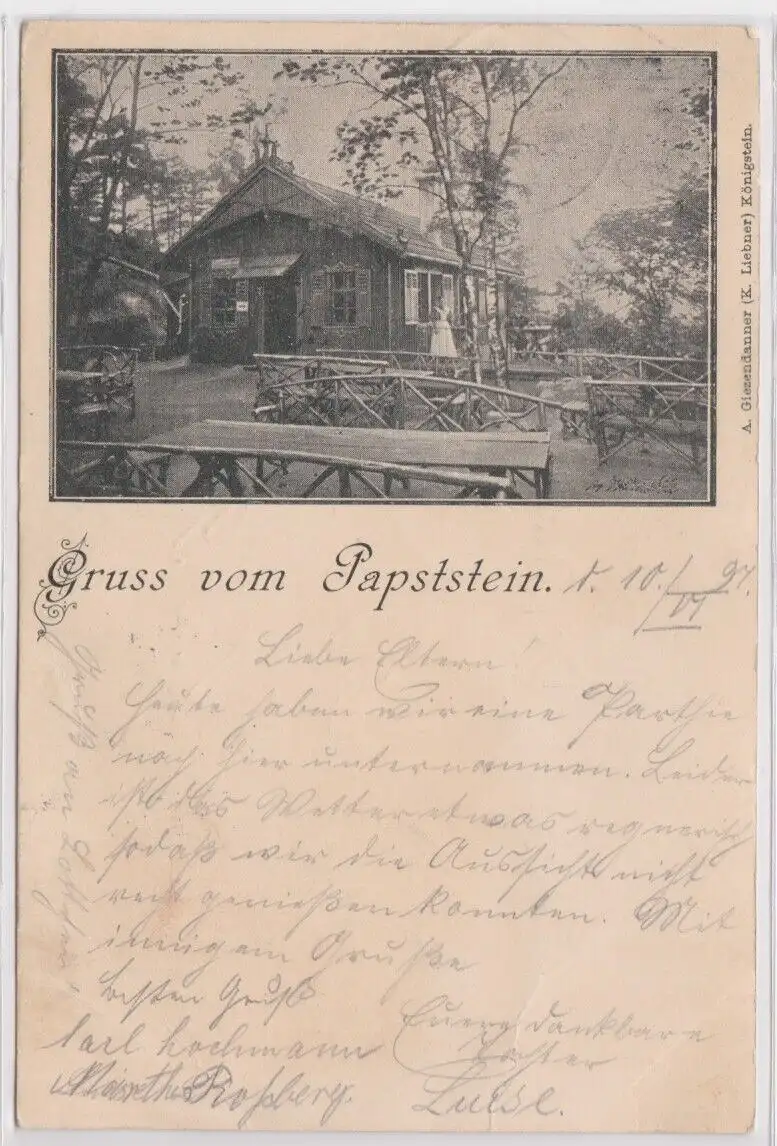 A. Giezendanner (K. Liebner) Königstein.
Gruss vom Papststein. d. 10./VI 97.
Liebe Eltern!
Heute haben wir eine Parthie
nach hier unternommen. Leider
ist das Wetter etwas regnerisch
sodaß wir die Aussicht nicht
recht genießen konnten. Mit
innigem Gruße
Eure dankbare
Tochter
Luise.
besten Gruß
Karl Lochmann
Roßberg.
Gruß an